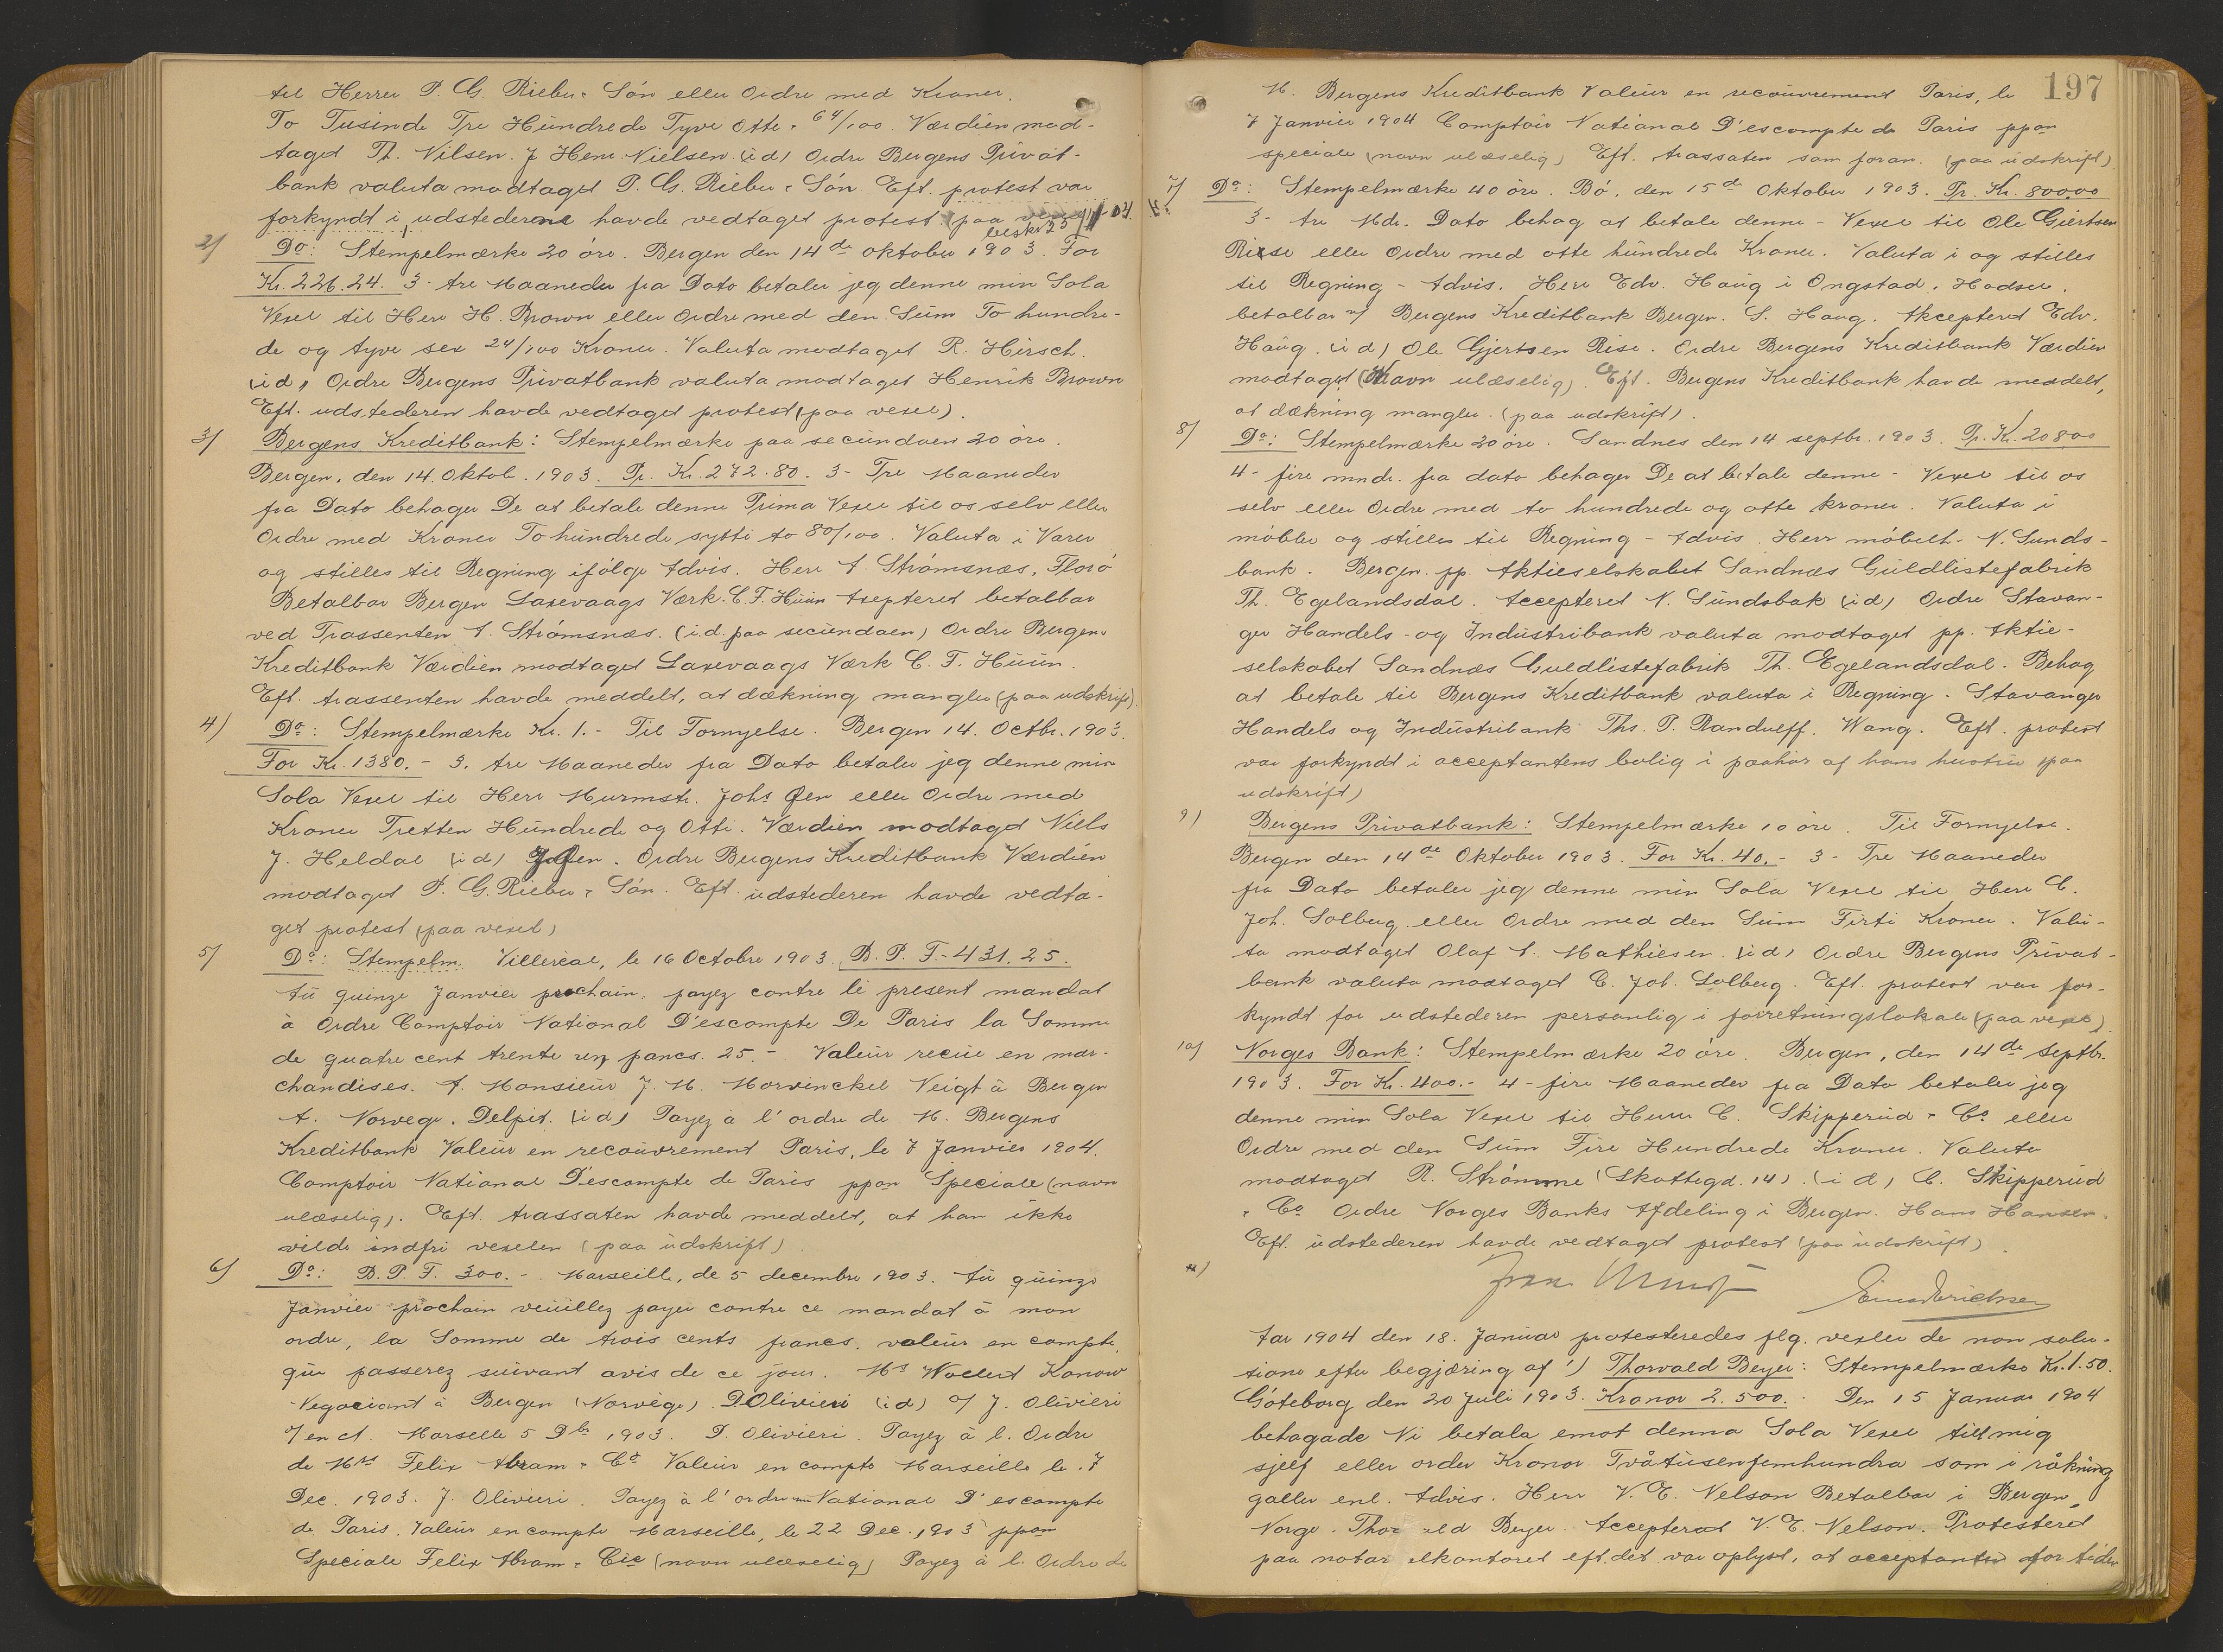 til Herrer P. G. Rieber & Søn eller Ordre med Kroner.
To Tusinde Tre Hundrede Tyve Otte & 64/100. Værdien mod-
taget Th. Nilsen. J Henr. Nielsen (id) Ordre Bergens Privat-
bank valuta modtaget P. G. Rieber & Søn Eft. protest var
forkyndt i udstederens havde vedtaget protest (paa vexel)
beskr 23/1-04
2) Do: Stempelmærke 20 öre. Bergen den 14de oktober 1903. For
Kr. 226.24. 3- tre Maaneder fra Dato betaler jeg denne min Sola
Vexel til Herr H. Brown eller Ordre med den Sum To hundre-
de og tyve sex 24/100 Kroner. Valuta modtaget R. Hirsch.
(id) Ordre Bergens Privatbank valuta modtaget Henrik Brown
Eft. udstederen havde vedtaget protest (paa vexel).
3) Bergens Kreditbank: Stempelmærke paa secundaen 20 öre.
Bergen, den 14. Oktob. 1903. Pr. Kr. 272.80. 3- Tre Maaneder
fra Dato behager De at betale denne Prima Vexel til os selv eller
Ordre med Kroner To hundrede sytti to 80/100. Valuta i Varer
og stilles til Regning ifølge Advis. Herr A. Strømsnæs, Florø
Betalbar Bergen Laxevaags Værk. C. F. Huun Axepteret betalbar
ved Trassenten A. Strømsnæs. (id. paa secundaen) Ordre Bergens
Kreditbank Værdien modtaget Laxevaags Værk C. F. Huun.
Eft. trassenten havde meddelt, at dækning mangler (paa udskrift).
4) Do: Stempelmærke Kr. 1.- Til Fornyelse. Bergen 14. Octbr. 1903.
For Kr. 1380.- 3. tre Maaneder fra Dato betaler jeg denne min
Sola Vexel til Herr Murmstr. Johs Øen eller Ordre med
Kroner Tretten Hundrede og Otti. Værdien modtaget Niels
J. Heldal (id) J Øen. Ordre Bergens Kreditbank Værdien
modtaget P. G. Rieber & Søn. Eft. udstederen havde vedta-
get protest (paa vexel)
5) Do: Stempelm. Villereal, le 16 Octobre 1903. B. P. F.- 431.25.
Au quinze Janvier prochain, payez contre le present mandat
à Ordre Comptoir National D'escompte De Paris la Somme
de quatre cent trente un francs. 25.- Valeur recue en mar-
chandises. A. Monsieur J. M. Morvinckel Veigt à Bergen
A. Norvege. Delpit. (id) Payez à l'ordre de M. Bergens
Kreditbank Valeur en recouvrement Paris, le 7 Janvier 1904.
Comptoir National D'escompte de Paris ppon Speciale (navn
ulæselig). Eft. trassaten havde meddelt, at han ikke
vilde indfri vexelen (paa udskrift)
6) Do: B. P. F. 300.-. Marseille, de 5 decembre 1903. Au quinze
Janvier prochain veuillez payer contre ce mandat à mon
ordre, la Somme de trois cents francs, valeur en compte,
que passerez suivant avis de ce jour. Mr Wollert Konow
Negociant à Bergen (Norvège). D Olivieri (id) J. Olivieri
Marseille 5 Dbr 1903. D. Olivieri. Payez à l. Ordre
de Mrs Felix Abram & Co Valeur en compte Marseille le. 7
Dec. 1903. J. Olivieri. Payez à l'ordre National D'escompte
de Paris. Valeur en compte Marseille, le 22 Dec. 1903 ppon
Speciale Felix Abram & Cie (navn ulæselig) Payez à l. Ordre de
197
M. Bergens Kreditbank Valeur en recouvrement Paris, le
7 Janvier 1904 Comptoir National D'escompte de Paris ppon
speciale (navn ulæselig) Eft. trassaten som foran. (paa udskrift)
7) Do: Stempelmærke 40 öre. Bø, den 15de Oktober 1903. Pr. Kr. 800.00
3- tre Mdr. Dato behag at betale denne - Vexel til Ole Giertsen
Riise eller Ordre med otte hundrede Kroner. Valuta i og stilles
til Regning - Advis. Herr Edv. Haug i Ongstad. Hadsel.
betalbar v/ Bergens Kreditbank Bergen. S. Haug. Akcepteret Edv.
Haug. (id) Ole Gjertsen Rise. Ordre Bergens Kreditbank Værdien
modtaget (Navn ulæselig). Eft. Bergens Kreditbank havde meddelt,
at dækning mangler. (paa udskrift).
8) Do: Stempelmærke 20 öre. Sandnes den 14 septbr. 1903. Pr. Kr. 208.00
4- fire mndr. fra dato behager De at betale denne - Vexel til os
selv eller Ordre med to hundrede og otte kroner. Valuta i
møbler og stilles til Regning - Advis. Herr møbelh. N. Sunds-
bank. Bergen. pp. Aktieselskabet Sandnæs Guldlistefabrik
Th. Egelandsdal. Accepteret N. Sundsbak (id) Ordre Stavan-
ger Handels- og Industribank valuta modtaget pp. Aktie-
selskabet Sandnæs Guldlistefabrik Th. Egelandsdal. Behag
at betale til Bergens Kreditbank valuta i Regning. Stavanger
Handels og Industribank Ths. P. Randulff. Wang. Eft. protest
var forkyndt i acceptantens bolig i paahør af hans hustru (paa
udskrift)
9) Bergens Privatbank: Stempelmærke 10 öre. Til Fornyelse.
Bergen den 14de Oktober 1903. For Kr. 40.- 3- Tre Maaneder
fra Dato betaler jeg denne min Sola Vexel til Herr C.
Joh. Solberg eller Ordre med den Sum Firti Kroner. Valu-
ta modtaget Olaf A. Mathiesen. (id) Ordre Bergens Privat-
bank valuta modtaget C. Joh. Solberg. Eft. protest var for-
kyndt for udstederen personlig i forretningslokale (paa vexel).
10) Norges Bank: Stempelmærke 20 öre. Bergen, den 14de Septbr.
1903. For Kr. 400.- 4- fire Maaneder fra Dato betaler jeg
denne min Sola Vexel til Herrer C. Skipperud & Co eller
Ordre med den Sum Fire Hundrede Kroner. Valuta
modtaget R. Strømme (Skottegd. 14). (id) C. Skipperud
& Co Ordre Norges Banks Afdeling i Bergen. Hans Hansen.
Eft. udstederen havde vedtaget protest (paa udskrift).
Aar 1904 den 18. Januar protesteredes flg. vexler de non solu-
tione efter begjæring af 1) Thorvald Beyer: Stempelmærke Kr. 1.50.
Göteborg den 20 Juli 1903. Kronor 2.500.- Den 15 Januar 1904
behagade Ni betala emot denna Sola Vexel till mig
sjelf eller order Kronor Tvåtusenfemhundra som i räkning
galler enl. Advis. Herr V. E. Nelson Betalbar i Bergen,
Norge. Thorvald Beyer. Accepterad V. E. Nelson. Protesteret
paa notarialkontoret eft. det var oplyst, at acceptanten for tiden